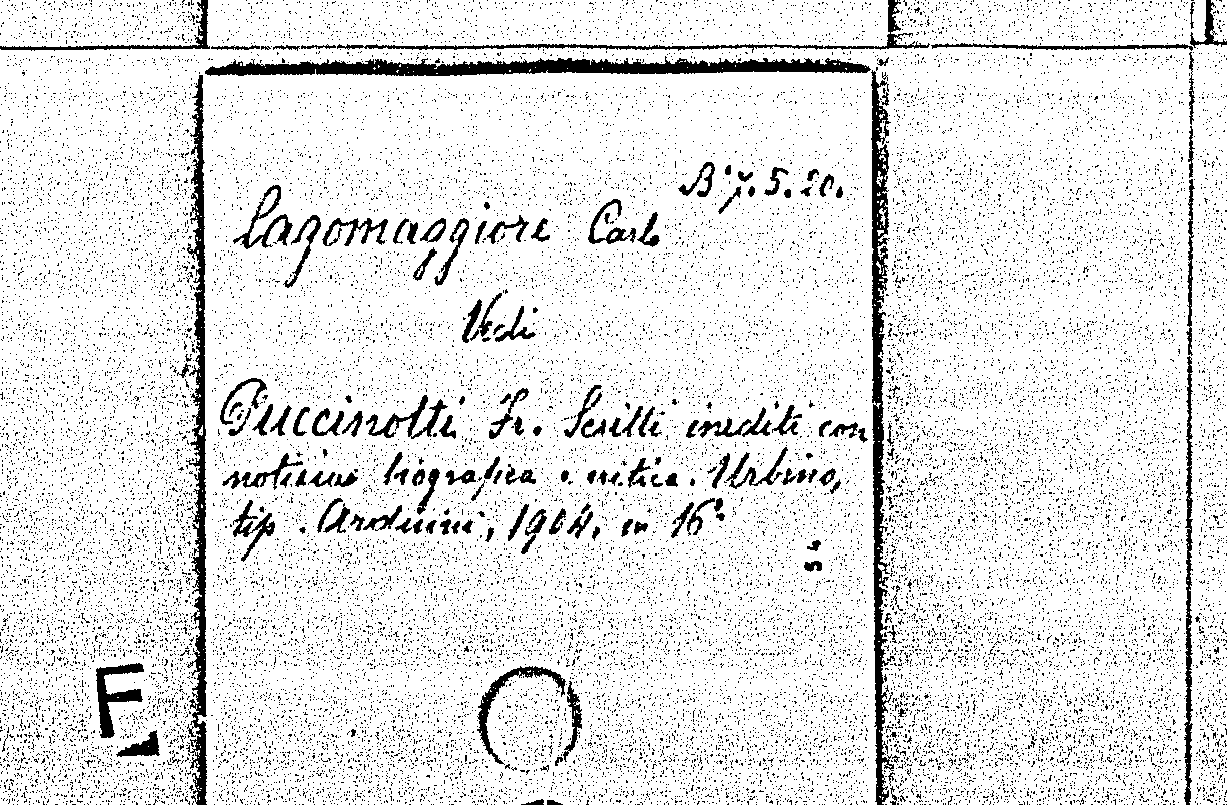 B' y. 5. 20.
Lagomaggiore Carlo
Vedi
Puccinotti Fr. Scritti inediti con
notizia biografica e critica. Urbino,
tip. Arduini, 1904. in 16°
F